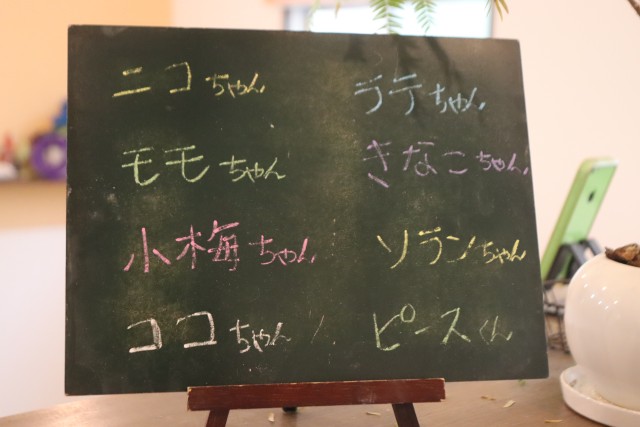 ニコちゃん
モモちゃん
小梅ちゃん
ココちゃん
ラテちゃん
きなこちゃん
ソランちゃん
ピースくん